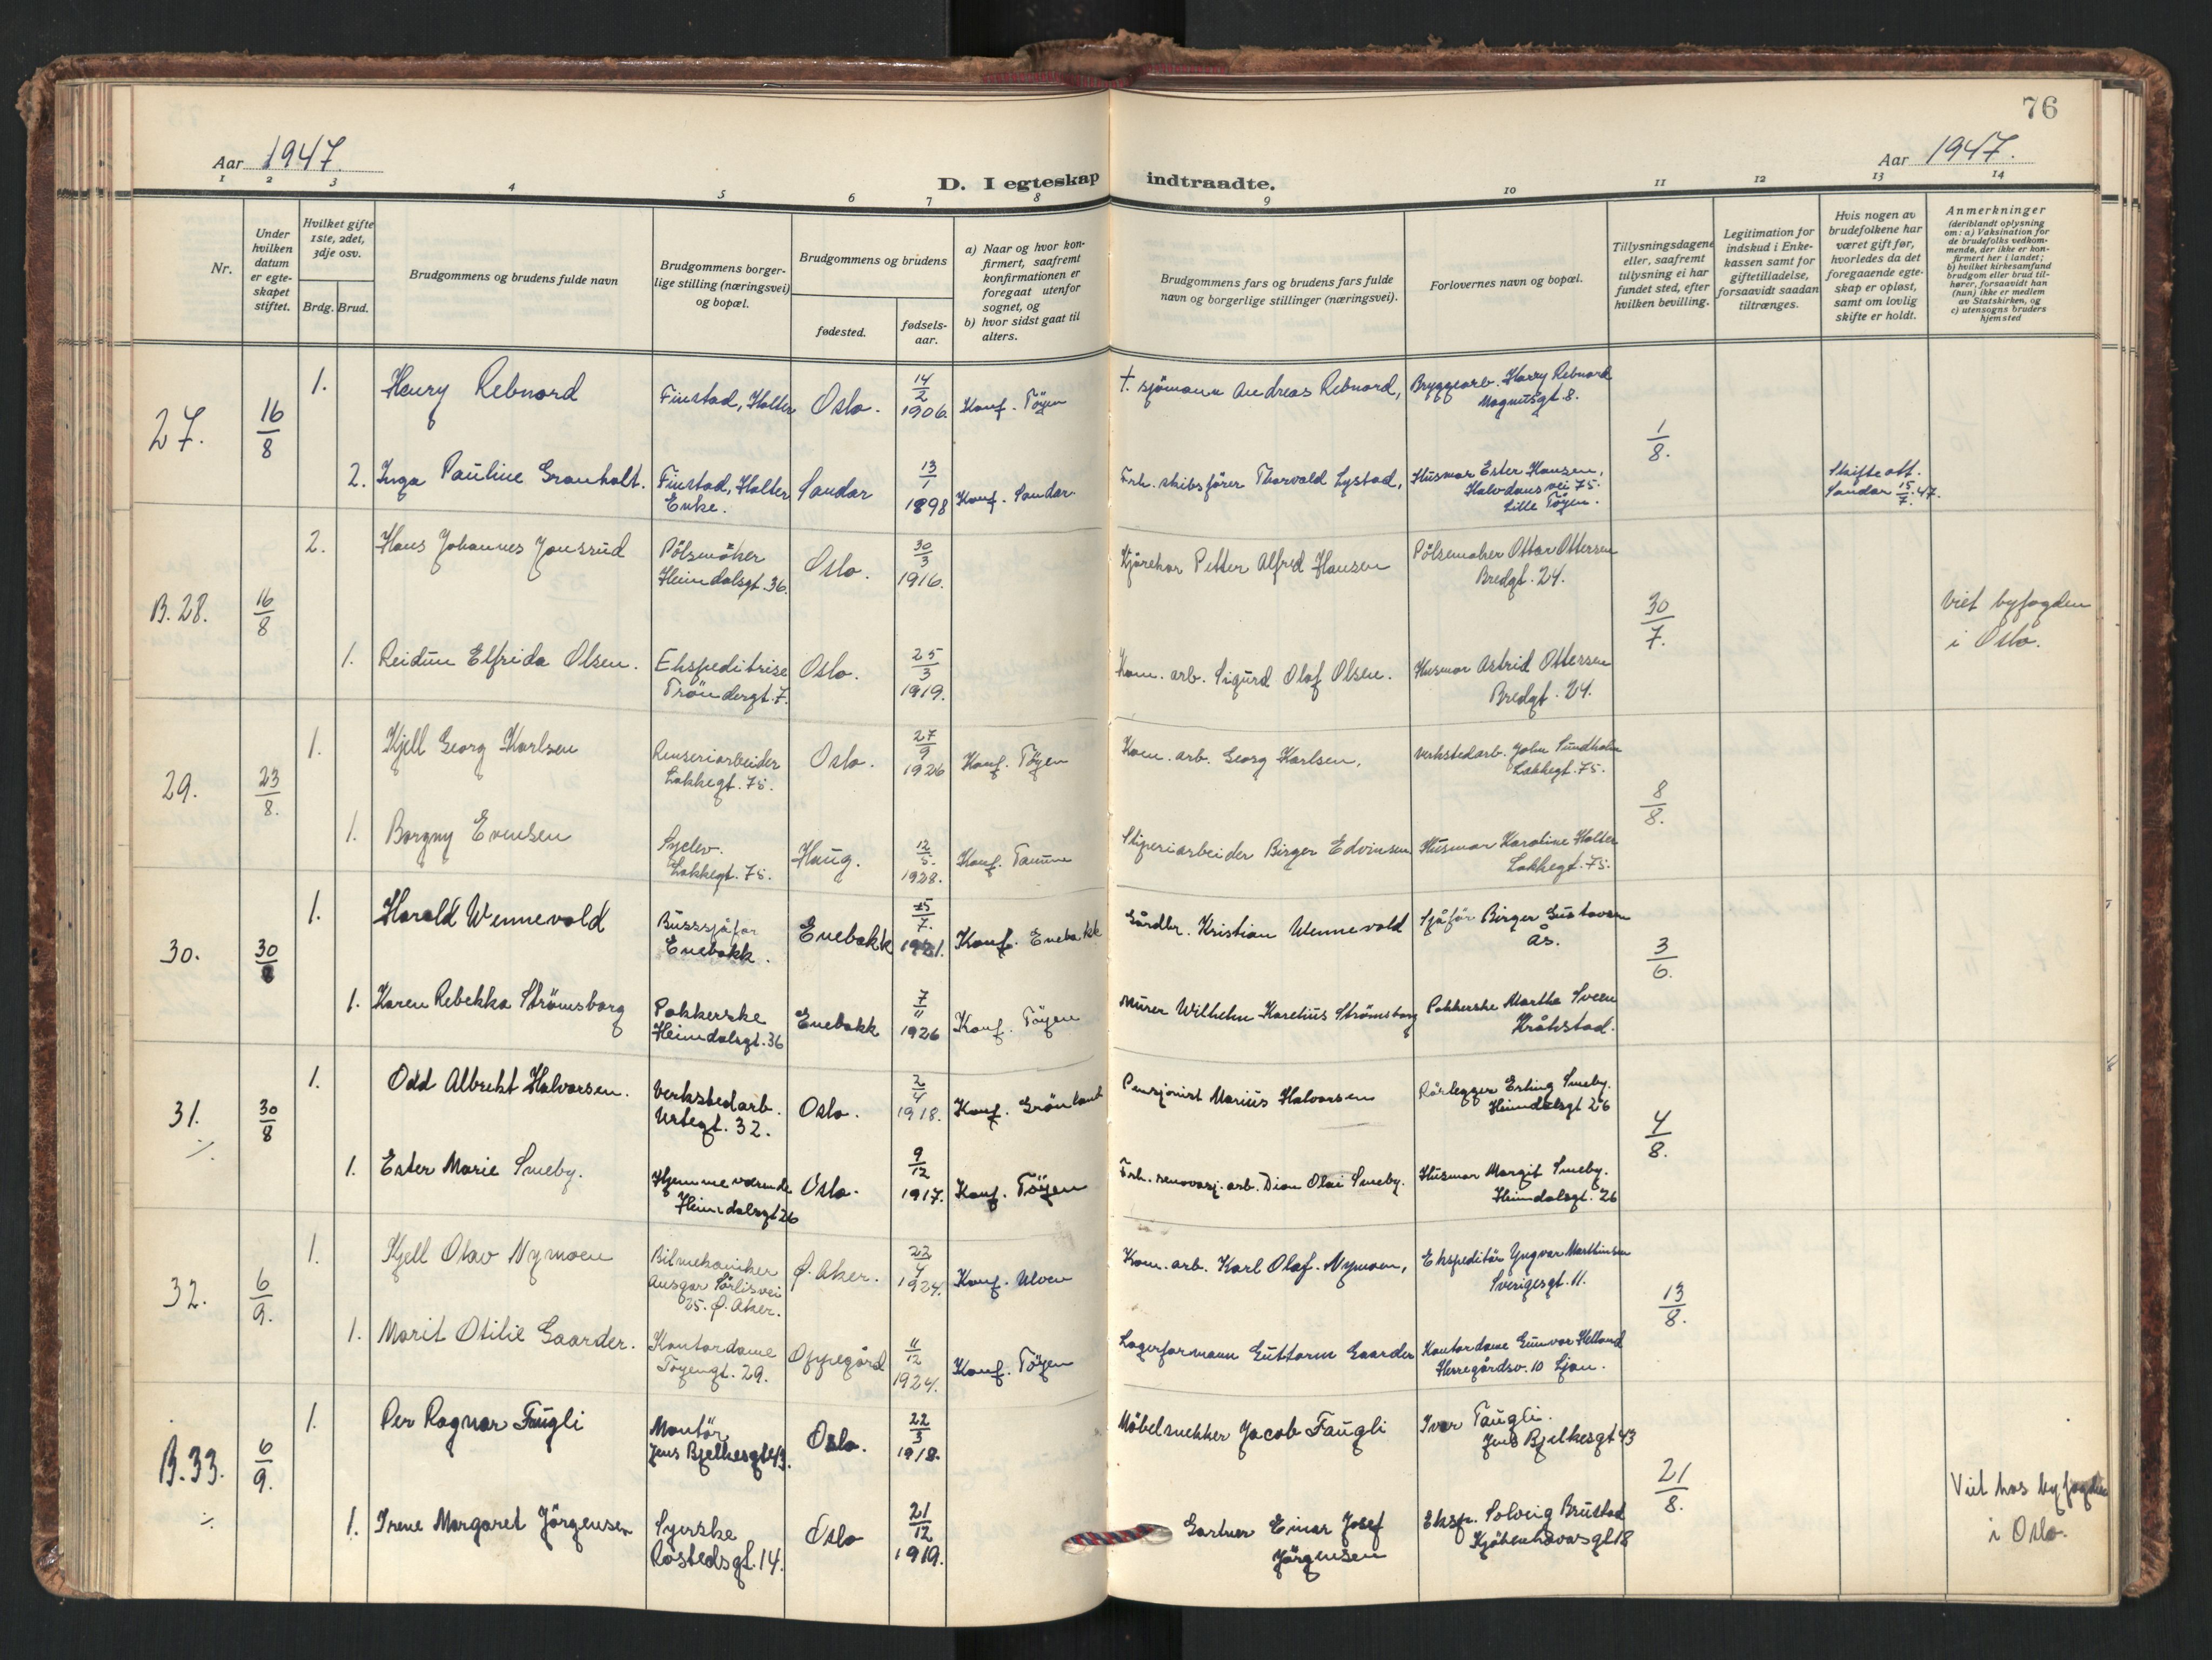 76
Aar 1947.
Aar 1947.
D. I egteskap indtraadte.
1 2 3 4 5 6 7 8 9 10 11 12 13 14
Nr.
Under
hvilken
datum
er egte-
skapet
stiftet.
Hvilket gifte
1ste, 2det,
3dje osv.
Brdg. Brud.
Brudgommens og brudens fulde navn
Brudgommens borger-
lige stilling (næringsvei)
og bopæl.
Brudgommens og brudens
fødested.
fødsels-
aar.
a) Naar og hvor kon-
firmert, saafremt
konfirmationen er
foregaat utenfor
sognet, og
b) hvor sidst gaat til
alters.
Brudgommens fars og brudens fars fulde
navn og borgerlige stillinger (næringsvei).
Forlovernes navn og bopæl.
Tillysningsdagene
eller, saafremt
tillysning ei har
fundet sted, efter
hvilken bevilling.
Legitimation for
indskud i Enke-
kassen samt for
giftetilladelse,
forsaavidt saadan
tiltrænges.
Hvis nogen av
brudefolkene har
været gift før,
hvorledes da det
foregaaende egte-
skap er opløst,
samt om lovlig
skifte er holdt.
Anmerkninger
(deriblandt oplysning
om: a) Vaksination for
de brudefolks vedkom-
mende, der ikke er kon-
firmert her i landet;
b) hvilket kirkesamfund
brudgom eller brud til-
hører, forsaavidt han
(hun) ikke er medlem
av Statskirken, og
c) utensogns bruders
hjemsted
27. 16/8
1. Henry Rebnord
Finstad, Holter
Oslo.
14/2 1906.
Konf. Tøyen
† sjømann Andreas Rebnord,
Bryggearb. Harry Rebnord
Magnusgt 8.
1/8.
2. Inga Pauline Granholt.
Finstad, Holter
Enke.
Sandar
13/1 1898
Konf. Sandar.
Frh. skibsfører Thorvald Lystad,
Husmor Ester Hansen,
Halvdans vei 75.
Lille Tøyen.
Skifteatt.
Sandar 15/7. 47.
B. 28. 16/8
2. Hans Johannes Jonsrud
Pölsemaker
Heimdalsgt. 36.
Oslo.
30/3 1916.
Kjørekar Petter Alfred Hansen
Pölsemaker Ottar Ottersen
Bredgt. 24.
30/7.
Viet byfogden
i Oslo.
1. Reidun Elfrida Olsen.
Ekspeditrise
Tröndergt. 7.
Oslo.
25/3 1919.
Kom. arb. Sigurd Olaf Olsen.
Husmor Astrid Ottersen
Bredgt. 24.
29. 23/8.
1. Kjell Georg Karlsen
Renseriarbeider
Lakkegt. 75.
Oslo.
27/9 1926
Konf. Tøyen
Kom. arb. Georg Karlsen,
Verkstedarb. John Sundholm
Lakkegt. 75.
8/8.
1. Borgny Evensen
Syelev.
Lakkegt. 75.
Haug.
12/5. 1928.
Konf. Tanum
Sliperiarbeider Birger Edvinsen
Husmor Karoline Holter
Lakkegt. 75.
30. 30/8
1. Harald Wennevold
Busssjåför
Enebakk.
Enebakk
15/7. 1921.
Konf. Enebakk
Gårdbr. Kristian Wennevold
Sjåför Birger Gustavsen
Ås.
3/6.
1. Karen Rebekka Strömsborg
Pakkerske
Heimdalsgt. 36
Enebakk
7/11 1926
Konf. Tøyen
Murer Wilhelm Karelius Strömsborg
Pakkerske Martha Sveen
Kråkstad.
31. 30/8
1. Odd Albrekt Halvorsen.
Verkstedarb.
Urtegt. 32.
Oslo.
2/4 1918.
Konf. Grönland
Pensjonist Marius Halvorsen
Rörlegger Erling Smeby.
Heimdalsgt 26
4/8.
1. Ester Marie Smeby.
Hjemmeværende
Heimdalsgt 26
Oslo.
9/12 1917.
Konf. Tøyen
Frh. renovasj. arb. Dion Olai Smeby.
Husmor Margit Smeby.
Heimdalsgt. 26
32. 6/9.
1. Kjell Olav Nymoen
Bilmekaniker
Ansgar Sörlisvei
25. Ø. Aker.
Ø. Aker.
22/4 1924.
Konf. Ulven
Kom. arb. Karl Olaf. Nymoen,
Ekspeditör Yngvar Marthinsen
Sverigesgt. 11.
13/8.
1. Marit Otilie Gaarder.
Kontordame
Tøyengt. 29.
Oppegård
11/12 1924.
Konf. Tøyen
Lagerformann Guttorm Gaarder
Kontordame Gunvor Helland
Herregårdsv. 10 Ljan.
B. 33. 6/9.
1. Per Ragnar Faugli
Montör
Jens Bjelkesgt 43.
Oslo.
22/3 1918.
Möbelsnekker Jacob Faugli
Ivar Faugli.
Jens Bjelkesgt 43
21/8.
1. Irene Margaret Jörgensen
Syerske
Rostedsgt. 14.
Oslo
21/12 1919.
Gartner Einar Josef
Jörgensen
Eksp. Solveig Brustad
Kjöbenhavnsgt 18
Viet hos byfogden
i Oslo.